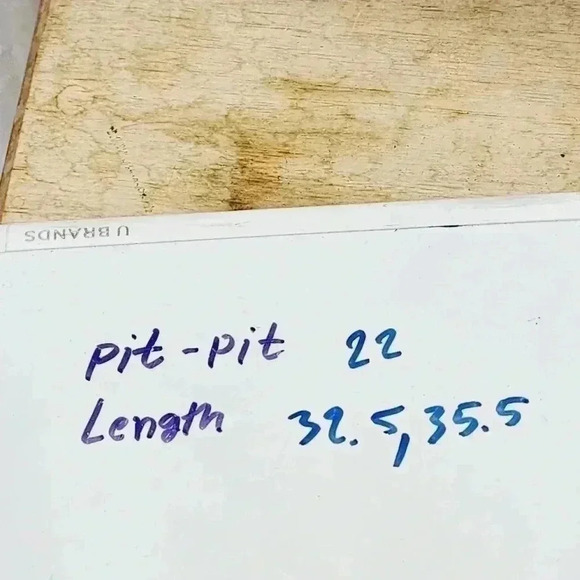 U BRANDS
pit-pit 22
Length 32.5, 35.5